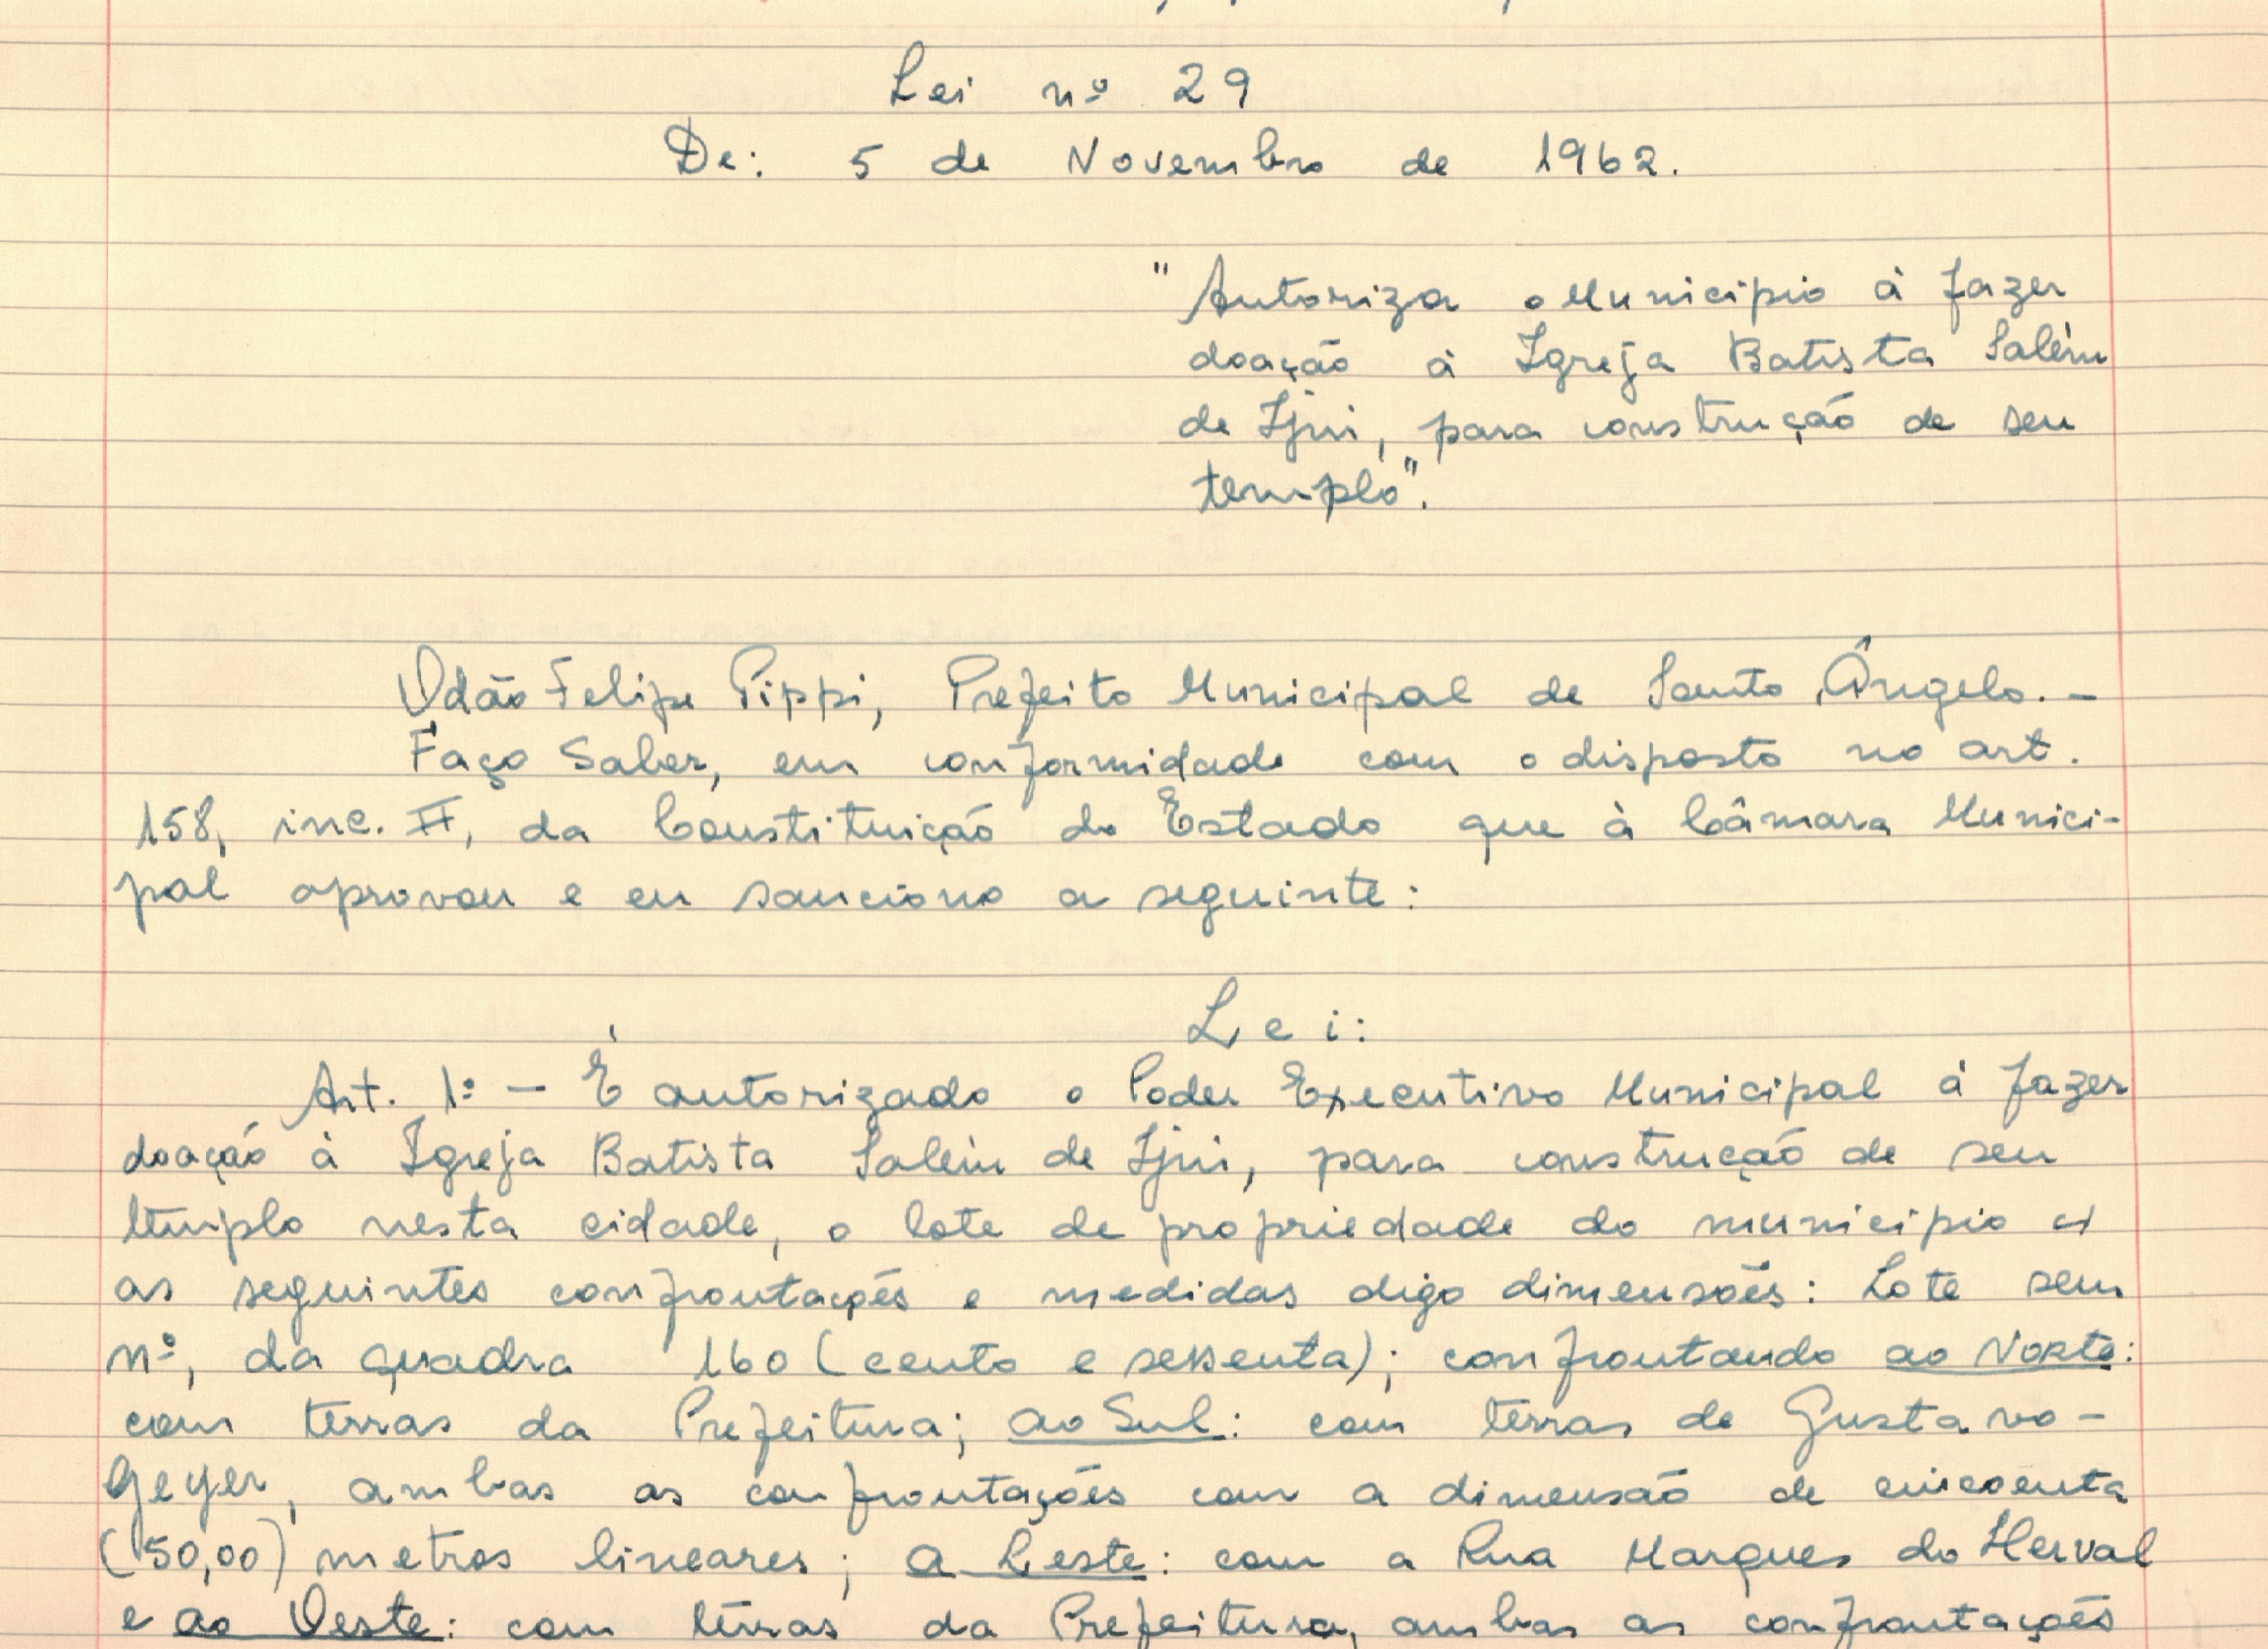 Lei nº 29
De: 5 de Novembro de 1962.
"Autoriza o Municipio à fazer
doação à Igreja Batista Salém
de Ijui, para construção de seu
templo".
Odão Felipe Pippi, Prefeito Municipal de Santo Ângelo. -
Faço Saber, em conformidade com o disposto no art.
158, inc. II, da Constituição do Estado que à Câmara Munici-
pal aprovou e eu sanciono a seguinte:
Lei:
Art. 1º - É autorizado o Poder Executivo Municipal à fazer
doação à Igreja Batista Salém de Ijui, para construção de seu
templo nesta cidade, o lote de propriedade do municipio c/
as seguintes confrontações e medidas digo dimensões: Lote sem
nº, da quadra 160 (cento e sessenta); confrontando ao Norte:
com terras da Prefeitura; ao Sul: com terras de Gustavo -
Geyer, ambas as confrontações com a dimensão de cincoenta
(50,00) metros lineares; a Leste: com a Rua Marques do Herval
e ao Oeste: com terras da Prefeitura, ambas as confrontações